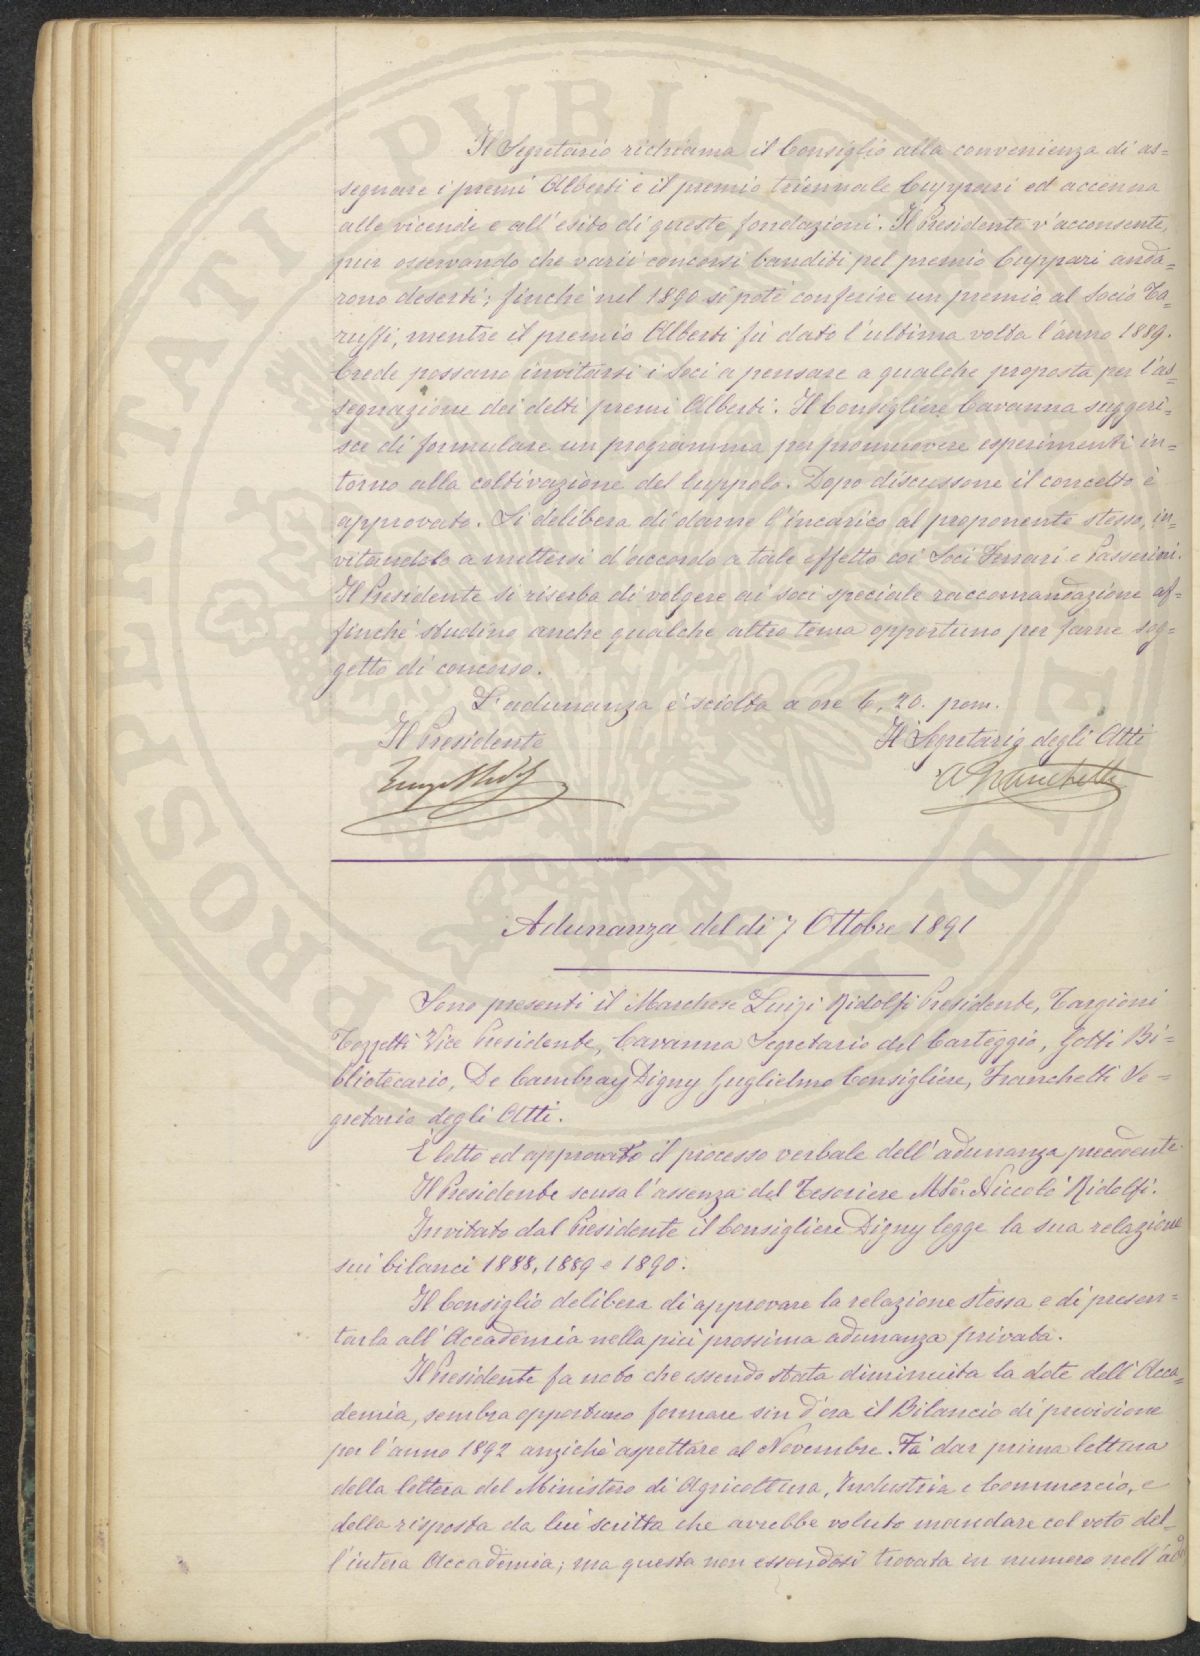 Il Segretario richiama il Consiglio alla convenienza di as=
segnare i premi Alberti e il premio triennale Cuppari ed accenna
alle vicende e all'esito di queste fondazioni. Il Presidente v'acconsente,
pur osservando che varii concorsi banditi pel premio Cuppari anda=
rono deserti; finchè nel 1890 si potè conferire un premio al Socio Ta=
ruffi, mentre il premio Alberti fu dato l'ultima volta l'anno 1889.
Crede possano invitarsi i Soci a pensare a qualche proposta per l'as=
segnazione dei detti premi Alberti. Il Consigliere Cavanna suggeri=
sce di formulare un programma per promuovere esperimenti in=
torno alla coltivazione del luppolo. Dopo discussone il concetto è
approvato. Si delibera di darne l'incarico al proponente stesso, in=
vitandolo a mettersi d'accordo a tale effetto coi Soci Ferrari e Passerini.
Il Presidente si riserba di volgere ai soci speciale raccomandazione af=
finchè studino anche qualche altro tema opportuno per farne sog=
getto di concorso.
L'adunanza è sciolta a ore 6,20. pom.
Il Presidente Il Segretario degli Atti
A Franchetti
Adunanza del di 7 Ottobre 1891
Sono presenti il Marchese Luigi Ridolfi Presidente, Targioni
Tozzetti Vice Presidente, Cavanna Segretario del Carteggio, Gotti Bi=
bliotecario, De Cambray Digny Guglielmo Consigliere, Franchetti Se=
gretario degli Atti.
È letto ed approvato il processo verbale dell'adunanza precedente.
Il Presidente scusa l'assenza del Tesoriere Mse. Niccolò Ridolfi.
Invitato dal Presidente il Consigliere Digny legge la sua relazione
sui bilanci 1888, 1889 e 1890.
Il Consiglio delibera di approvare la relazione stessa e di presen=
tarla all'Accademia nella più prossima adunanza privata.
Il Presidente fa noto che essendo stata diminuita la dote dell'Acca=
demia, sembra opportuno formare sin d'ora il Bilancio di previsione
per l'anno 1892 anzichè aspettare al Novembre. Fa dar prima lettura
della lettera del Ministero di Agricoltura, Industria e Commercio, e
della risposta da lui scritta che avrebbe voluto mandare col voto del=
l'intera Accademia; ma questa non essendosi trovata in numero nell'ad
PROSPERITATI PVBLICAE AVGENDAE